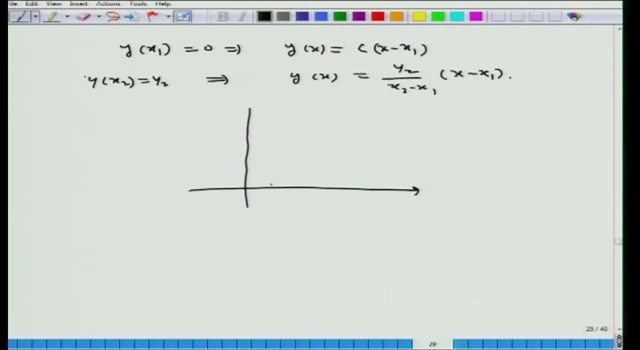 Edit View Insert Actions Tools Help
y(x₁) = 0 ⇒ y(x) = C(x-x₁)
y(x₂) = y₂ ⇒ y(x) = y₂/(x₂-x₁) (x-x₁).
29 / 40
29